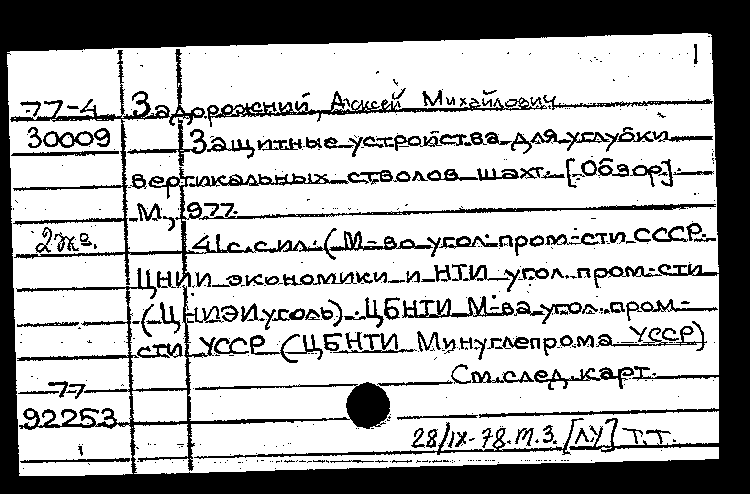 1
77-4 Задорожний, Алексей Михайлович
30009 Защитные устройства для углубки
вертикальных стволов шахт. [Обзор].
М., 1977.
2 экз. 41 с. с ил. (М-во угол. пром-сти СССР.
ЦНИИ экономики и НТИ угол. пром-сти
(ЦНИЭИуголь). ЦБНТИ М-ва угол. пром-
сти УССР (ЦБНТИ Минуглепрома УССР)
77 См. след. карт.
92253
28/IX-78. т.з. [ЛУ] Т.Т.